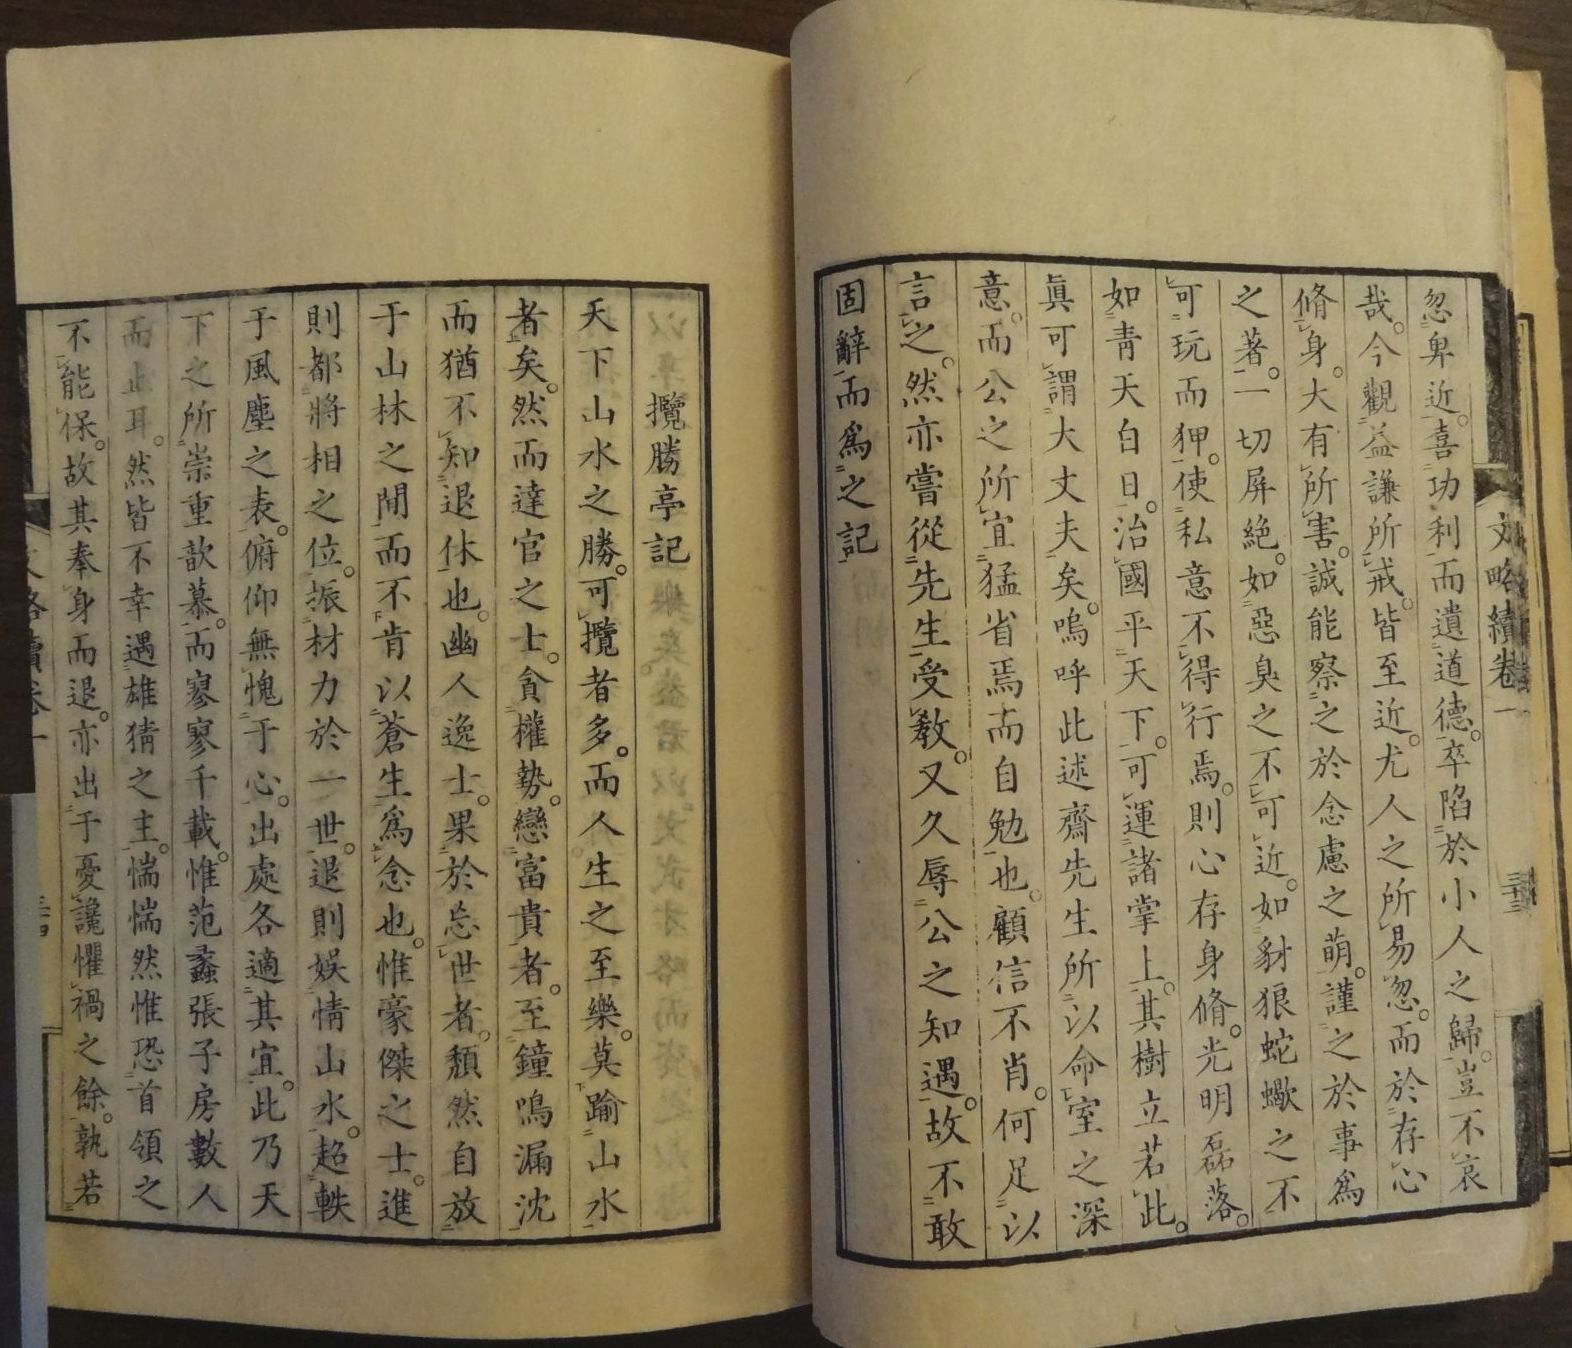 文略續卷一
三十三
忽卑近。喜功利而遺道德。卒陷於小人之歸。豈不哀
哉。今觀益謙所戒。皆至近。尤人之所易忽。而於存心
脩身。大有所害。誠能察之於念慮之萌。謹之於事爲
之著。一切屏絕。如惡臭之不可近。如豺狼蛇蠍之不
可玩而狎。使私意不得行焉。則心存身脩。光明磊落。
如靑天白日。治國平天下。可運諸掌上。其樹立若此。
眞可謂大丈夫矣。嗚呼此述齋先生所以命室之深
意。而公之所宜猛省焉而自勉也。顧信不肖。何足以
言之。然亦嘗從先生受敎。又久辱公之知遇。故不敢
固辭而爲之記
攬勝亭記
天下山水之勝。可攬者多。而人生之至樂。莫踰山水
者矣。然而達官之士。貪權勢。戀富貴者。至鐘鳴漏沈
而猶不知退休也。幽人逸士。果於忘世者。頹然自放
于山林之閒而不肯以蒼生爲念也。惟豪傑之士。進
則都將相之位。振材力於一世。退則娛情山水。超軼
于風塵之表。俯仰無愧于心。出處各適其宜。此乃天
下之所崇重歆慕。而寥寥千載。惟范蠡張子房數人
而止耳。然皆不幸遇雄猜之主。惴惴然惟恐首領之
不能保。故其奉身而退。亦出于憂讒懼禍之餘。孰若
文略續卷一
三十四